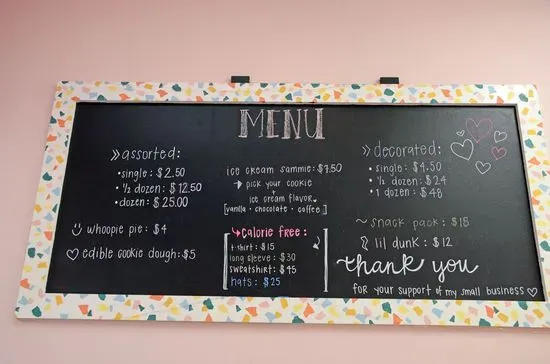 MENU
» assorted:
• single: $2.50
• ½ dozen: $12.50
• dozen: $25.00
whoopie pie: $4
edible cookie dough: $5
ice cream sammie: $7.50
pick your cookie
+
ice cream flavor.
[vanilla • chocolate • coffee]
calorie free:
t-shirt: $15
long sleeve: $30
sweatshirt: $45
hats: $25
» decorated:
• single: $4.50
• ½ dozen: $24
• 1 dozen: $48
~ snack pack: $18
lil dunk: $12
thank you
for your support of my small business